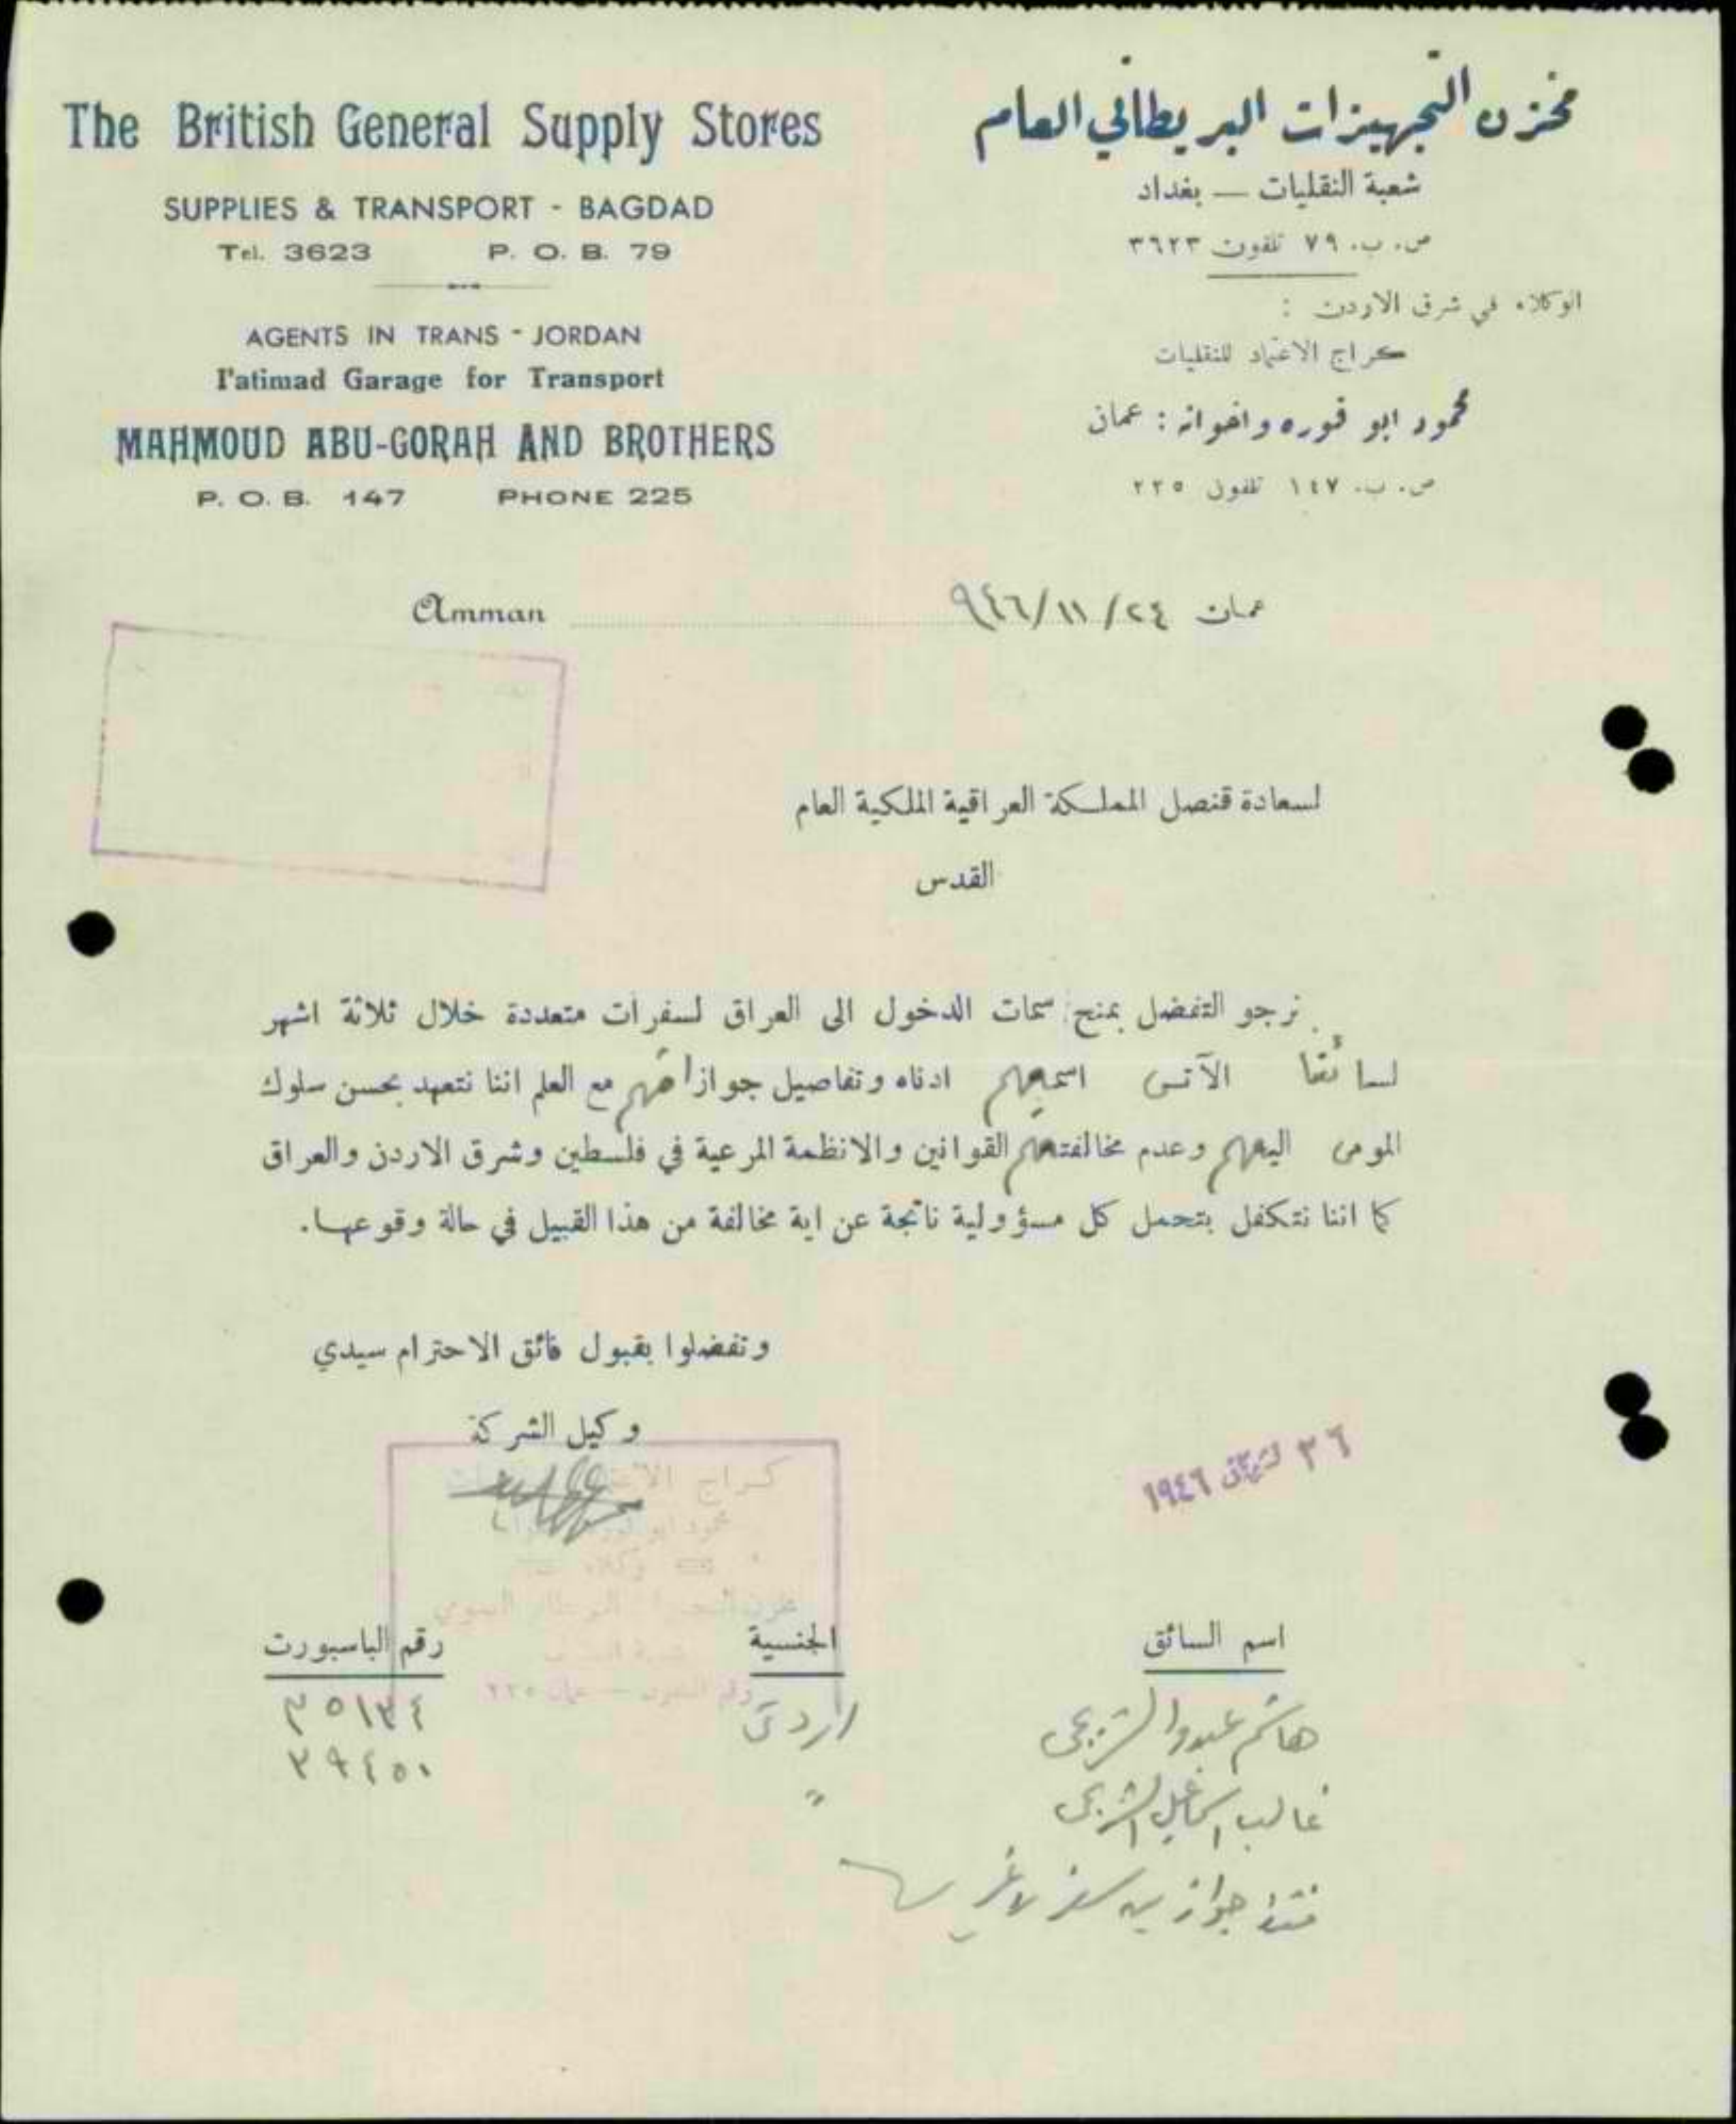 The British General Supply Stores
SUPPLIES & TRANSPORT - BAGDAD
Tel. 3623 P. O. B. 79
AGENTS IN TRANS - JORDAN
I'atimad Garage for Transport
MAHMOUD ABU-GORAH AND BROTHERS
P. O. B. 147 PHONE 225
مخزن التجهيزات البريطاني العام
شعبة النقليات — بغداد
ص. ب. ٧٩ تلفون ٣٦٢٣
الوكلاء في شرق الاردن :
كراج الاعتماد للنقليات
محمود ابو قوره واخوانه : عمان
ص. ب. ١٤٧ تلفون ٢٢٥
Amman عمان ٢٤/ ١١/ ٩٤٦
لسعادة قنصل المملكة العراقية الملكية العام
القدس
نرجو التفضل بمنح سمات الدخول الى العراق لسفرات متعددة خلال ثلاثة اشهر
لسائقنا الآتي اسمهم ادناه وتفاصيل جوازاتهم مع العلم اننا نتعهد بحسن سلوك
المومى اليهم وعدم مخالفتهم القوانين والانظمة المرعية في فلسطين وشرق الاردن والعراق
كما اننا نتكفل بتحمل كل مسؤولية ناتجة عن اية مخالفة من هذا القبيل في حالة وقوعها.
وتفضلوا بقبول فائق الاحترام سيدي
وكيل الشركة
كراج
٢٦ تشرين ١٩٤٦
اسم السائق الجنسية رقم الباسبورت
هاشم عبدو الشربجي اردني ٣٥١٣٤
غالب اسماعيل الشربجي " ٣٩٤٥٠
فقط جوازين سفر لا غير